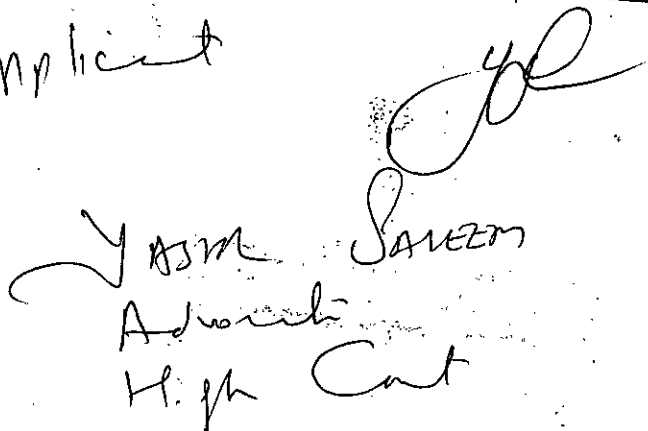 Applicant
YASIR SALEEM
Advocate
High Court